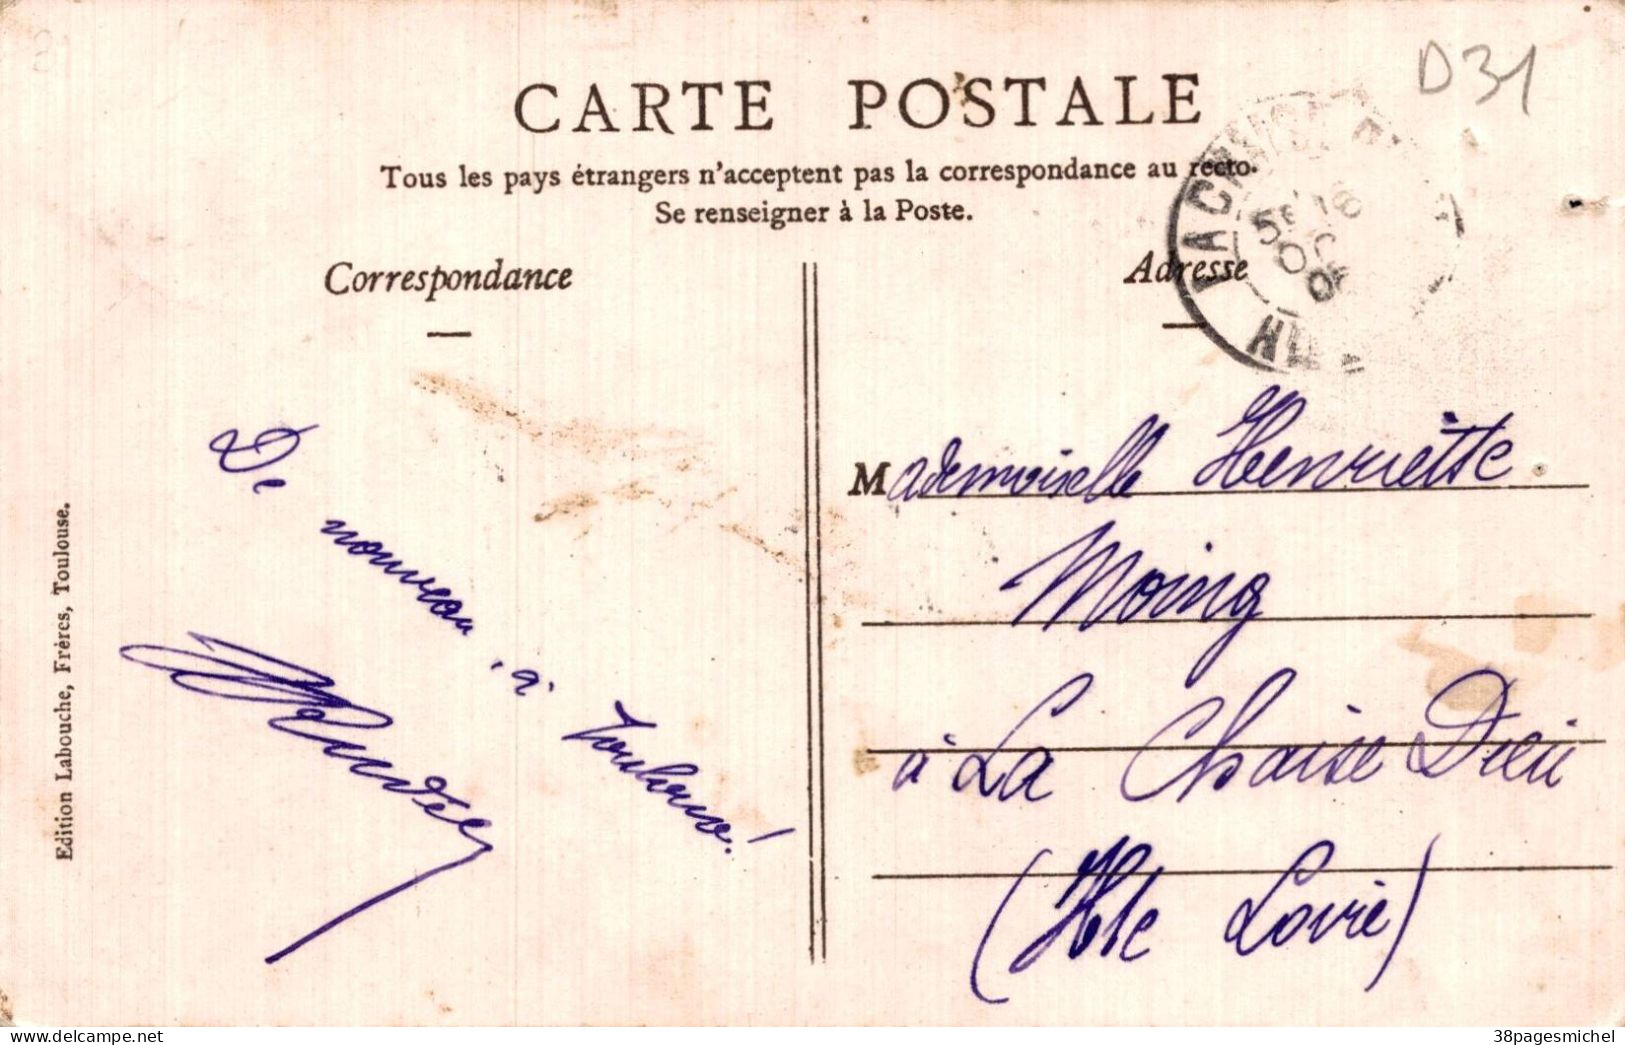 D31
CARTE POSTALE
Tous les pays étrangers n'acceptent pas la correspondance au recto.
Se renseigner à la Poste.
Correspondance
De
nouveau, à
Toulouse!
Edition Labouche, Frères, Toulouse.
Adresse
LA CHAISE
16
OC
05
Mademoiselle Henriette
Moing
à La Chaise Dieu
(Hte Loire)
38pagesmichel